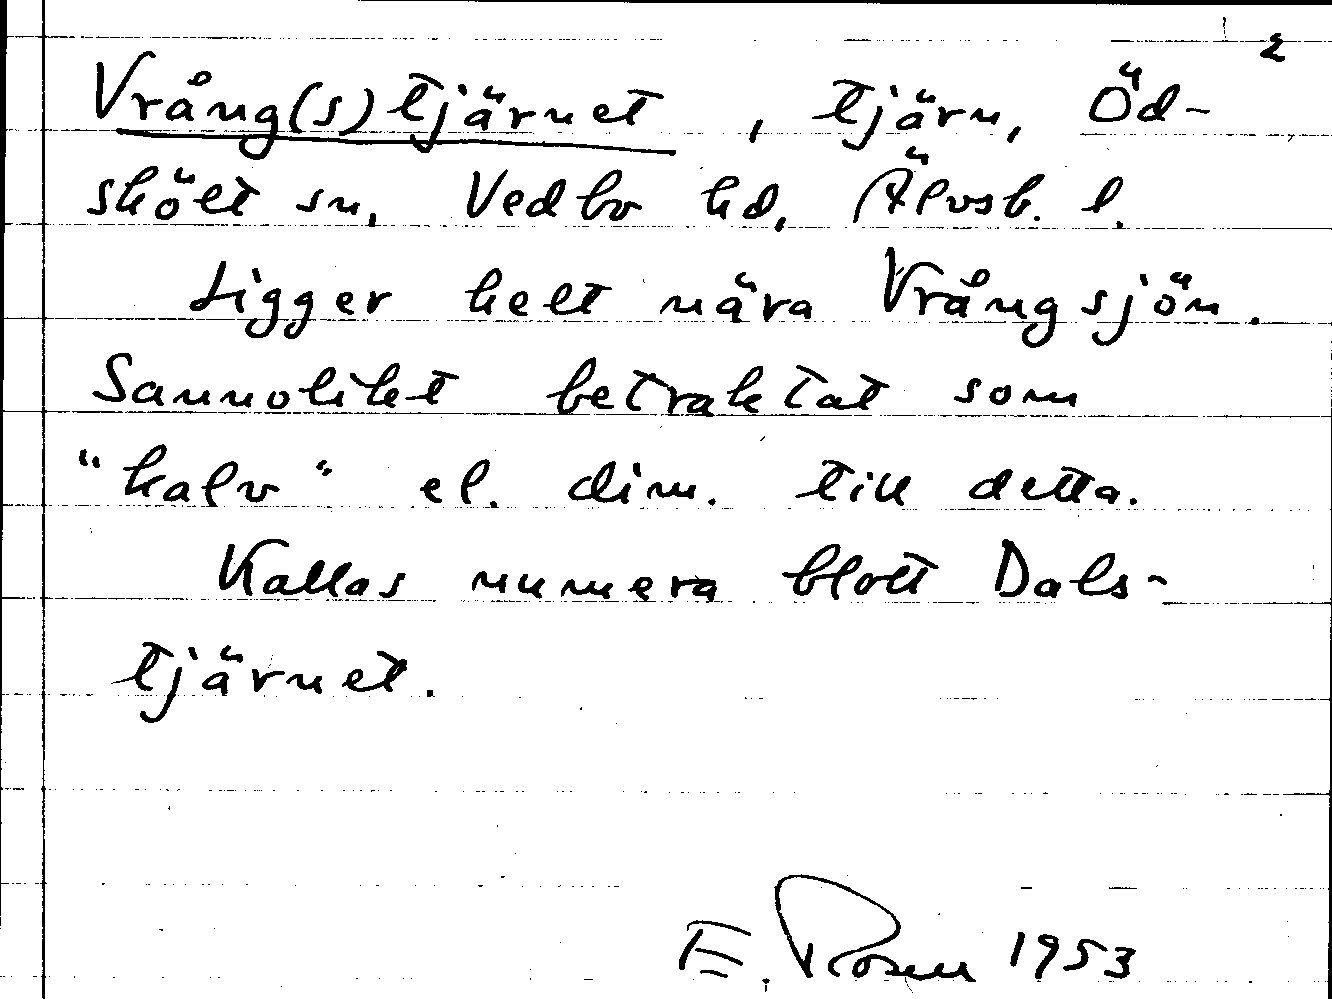 2
Vrång(s)tjärnet, tjärn, Öd-
skölt sn, Vedbo hd, Älvsb. l.
Ligger helt nära Vrångsjön.
Sannolikt betraktat som
"kalv" el. dim. till detta.
Kallas numera blott Dals-
tjärnet.
E. Rosen 1953